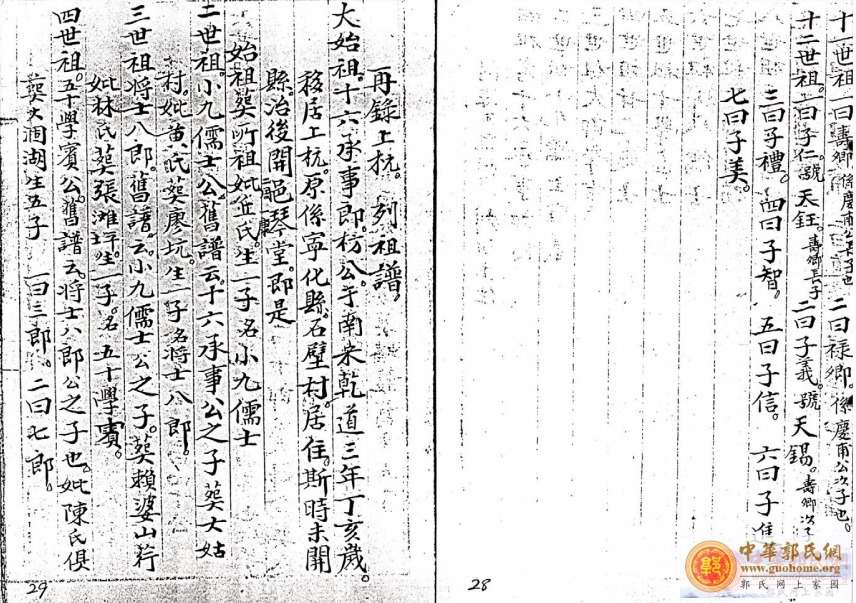 十一世祖一曰壽卿係慶甫公長子也 二曰禄卿。係慶甫公次子也。
十二世祖。一曰子仁。號天鈺。壽卿長子 二曰子義。號天錫。壽卿次子
三曰子禮。 四曰子智。 五曰子信。 六曰子
七曰子美。
28
再錄上杭。列祖譜。
大始祖。十六承事郎。枋公。于南宋乾道三年丁亥歲。
移居上杭。原係寧化縣。石壁村。居住。斯時未開
縣。治後開邑琴堂。即是
始祖葬所祖妣丘氏。生一子名小九儒士
二世祖。小九儒士公。舊譜云。十六承事公之子葬大姑
村。妣黃氏葬廖坑。生一子名將士八郎。
三世祖將士八郎。舊譜云。小九儒士公之子。葵賴婆山荇
妣林氏葬張滩坪。生一子。名五十學賓。
四世祖。五十學賓公。舊譜云。將士八郎公之子也。妣陳氏俱
葬大洞湖生五子 一曰三郎。二曰七郎。
29
中華郭氏網
www.guohome.org
郭氏网上家园